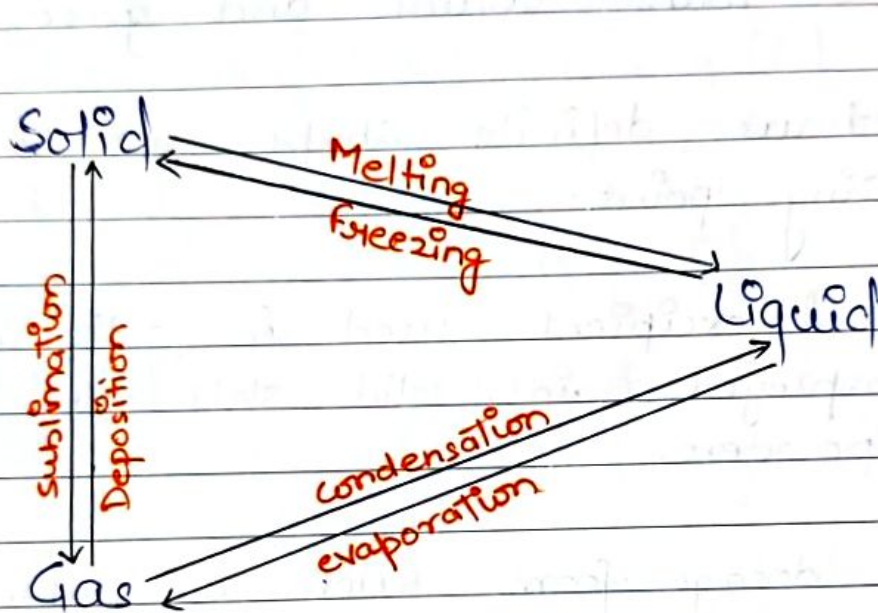 Solid
Melting
Freezing
Liquid
Sublimation
Deposition
condensation
evaporation
Gas